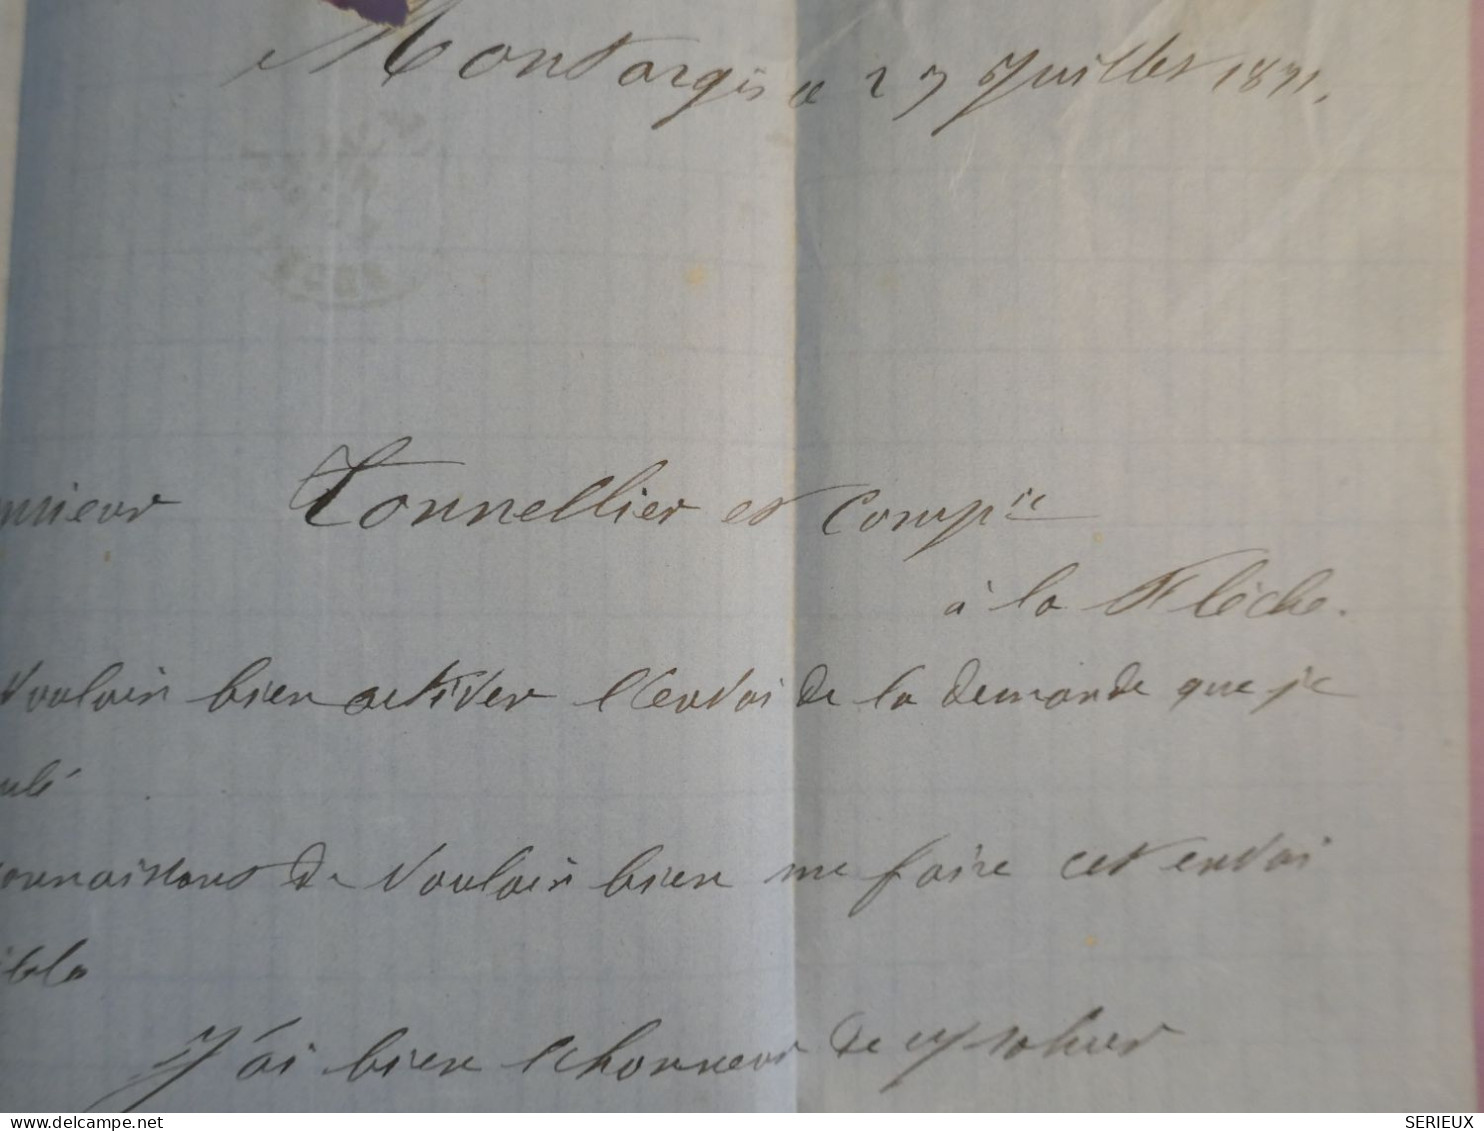 Montargis le 27 Juillet 1871.
nsieur Tonnellier et Comp ie
à la Flèche.
Vouloir bien activer l'envoi de la demande que je
ulé
onnaissant de Vouloir bien me faire cet envoi
ible
J'ai bien l'honneur de
SERIEUX